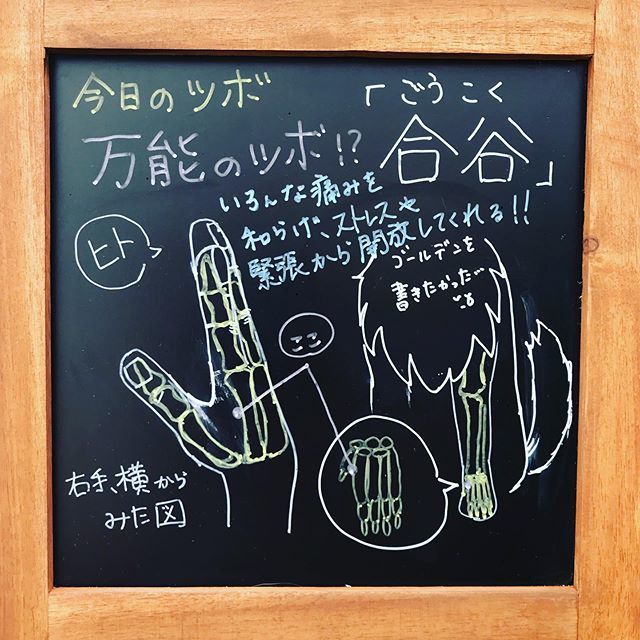 今日のツボ
「ごうこく
万能のツボ!?
合谷」
いろんな痛みを
和らげ、ストレスや
緊張から開放してくれる!!
ヒト
ゴールデンを
書きたかった
ここ
右手、横から
みた図